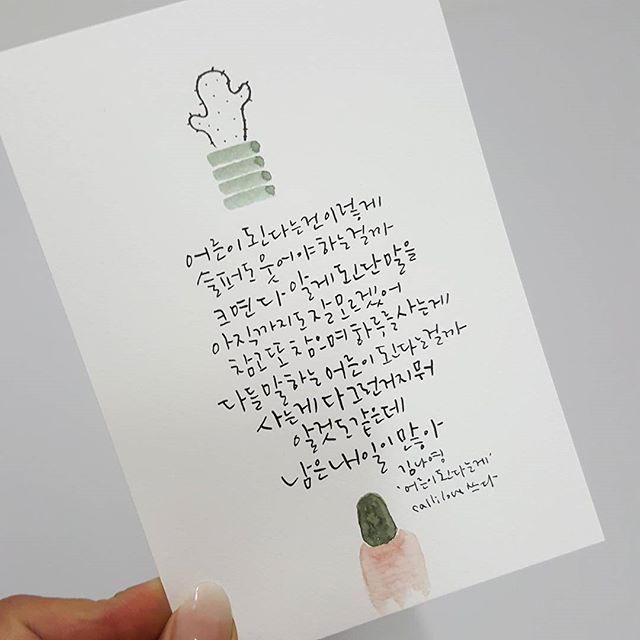 어른이 된다는건 이렇게
슬퍼도 웃어야 하는걸까
크면 다 알게 된단 말을
아직까지도 잘 모르겠어
참고 또 참으며 하루를 사는게
다들 말하는 어른이 된다는걸까
사는게 다 그런거지 뭐
알것도 같은데
남은 내일이 많아
김나영
'어른이 된다는게'
callilove 쓰다